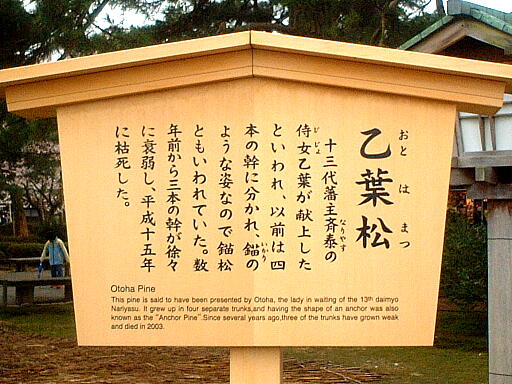 乙葉松
おとは まつ
十三代藩主斉泰の
なりやす
侍女乙葉が献上した
じじょ
といわれ、以前は四
本の幹に分かれ、錨の
いかり
ような姿なので錨松
ともいわれていた。数
年前から三本の幹が徐々
に衰弱し、平成十五年
に枯死した。
Otoha Pine
This pine is said to have been presented by Otoha, the lady in waiting of the 13th daimyo
Nariyasu. It grew up in four separate trunks,and having the shape of an anchor was also
known as the "Anchor Pine".Since several years ago,three of the trunks have grown weak
and died in 2003.